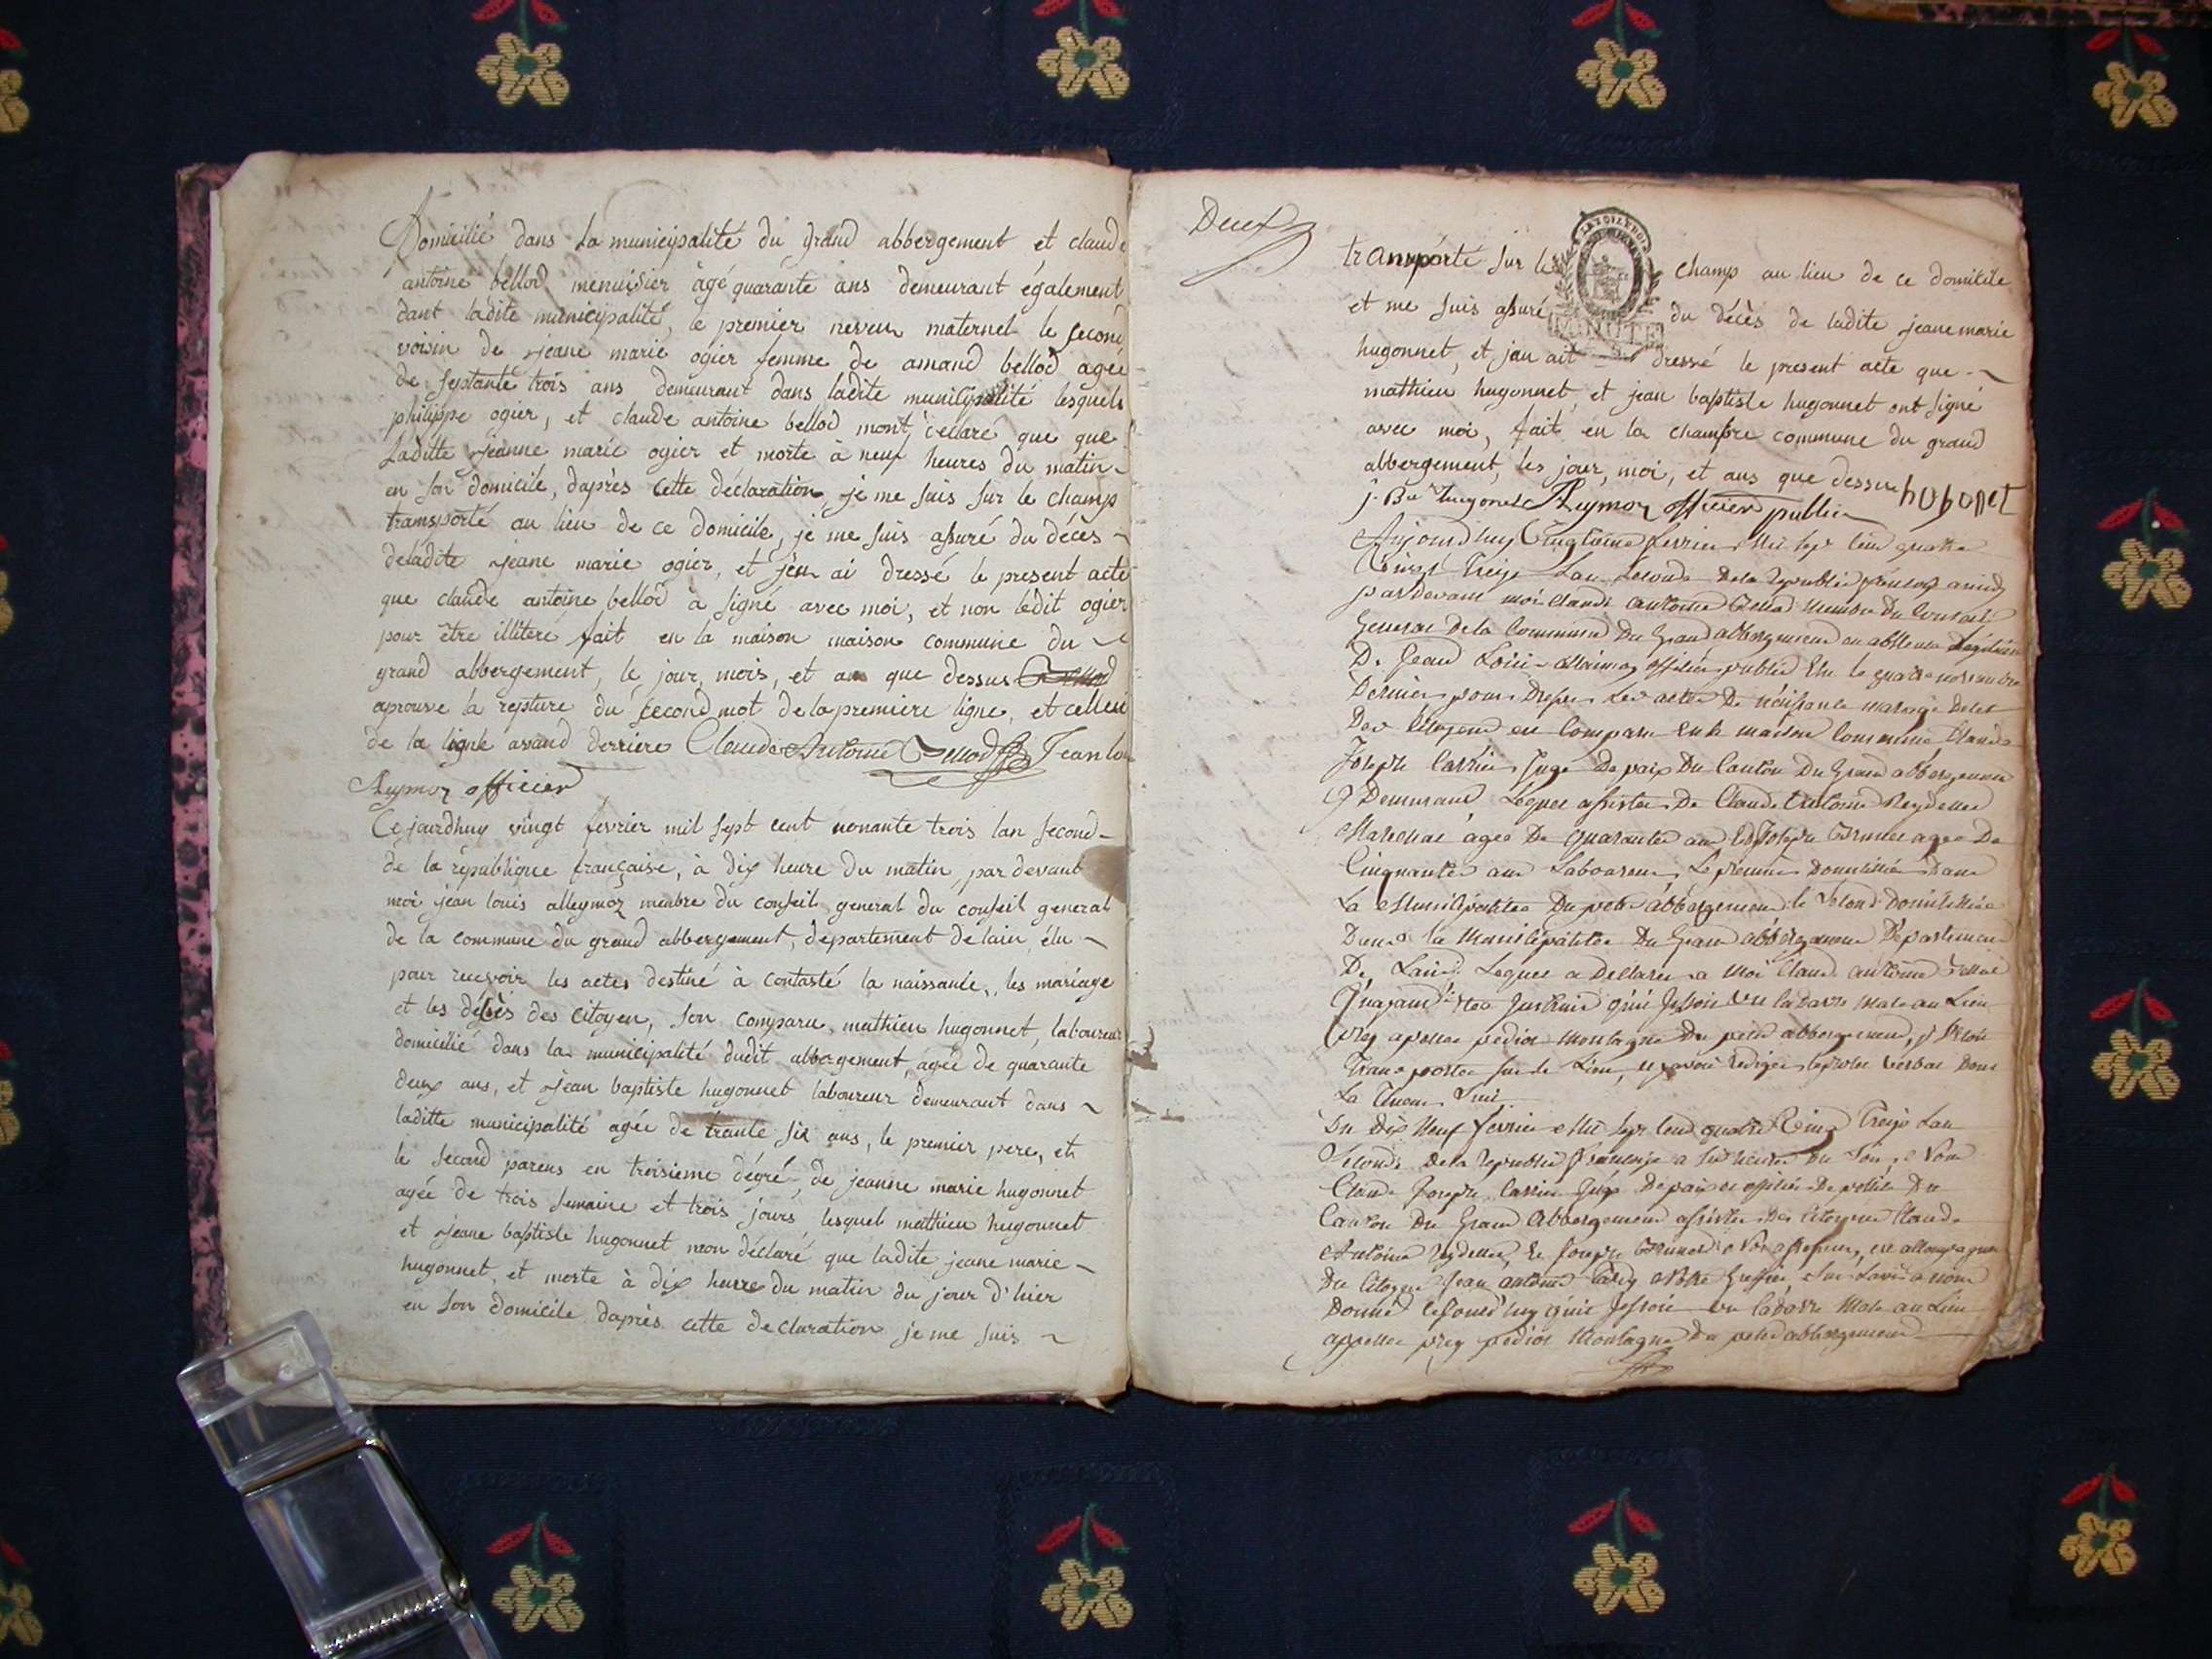 Domicilié dans la municipalité du grand abbergement et claude
antoine bellod menuisier âgé quarante ans demeurant également
dant ladite municipalité, le premier neveu maternel le second
voisin de jeane marie ogier femme de amand bellod agée
de septante trois ans demeurant dans ladite municipalité lesquels
philippe ogier, et claude antoine bellod mont déclaré que que
laditte jeanne marie ogier et morte à neuf heures du matin
en son domicile, daprès cette déclaration, je me suis sur le champ
transporté au lieu de ce domicile, je me suis assuré du décès
deladite jeane marie ogier, et j'en ai dressé le present acte
que claude antoine bellod à signé avec moi, et non ledit ogier
pour être illiteré fait en la maison maison commune du
grand abbergement, le jour, mois, et an que dessus
aprouve la repture du second mot de la premiere ligne, et celleci
de la lignle avand derriere Claude Antoine Bellod Jean lou
Reymoz officier
Cejourdhuy vingt fevrier mil sept cent nonante trois lan second
de la république française, à dix heure du matin, par devant
moi jean louis alleymoz menbre du conseil general du conseil general
de la commune du grand abbergement, département de lain, élu
pour recevoir les actes destiné à contasté la naissance, les mariage
et les décès des citoyen, son comparu, mathieu hugonnet, laboureur
domicilié dans la municipalité dudit abbergement, agée de quarante
deux ans, et jean baptiste hugonnet laboureur demeurant dans
laditte municipalité agée de trante six ans, le premier pere, et
le second parens en troisieme dégré de jeanne marie hugonnet
agée de trois semaine et trois jours, lesquel mathieu hugonnet
et jeane baptiste hugonnet mon déclaré que ladite jeane marie
hugonnet, et morte à dix heures du matin du jour d'hier
en son domicile daprès cette declaration je me suis
Deux
transporté sur le champ au lieu de ce domicile
et me suis assuré du décès de ladite jeane marie
hugonnet, et jan ait dressé le present acte que
mathieu hugonnet, et jean baptiste hugonnet ont signé
avec moi, fait en la chambre commune du grand
abbergement, les jour, moi, et ans que dessus hugonet
j. Bte hugonet Reymoz officier public
Aujourdhuy Vingtieme fevrier Mil sept cent quatre
Vingt Treize Lan second De la republique
pardevant moi Claude antoine Bellod Membre Du Conseil
General De la Commune Du Grand abbergement en absence
De Jean Louis officier public Elu le quatre novembre
Dernier pour Dresser Les actes De naissance mariage Deces
Des Citoyens en Comparu En la maison Commune Claude
Joseph Carrier Juge De paix Du Canton Du Grand abbergement
y Demeurant Lequel assisté De Claude Antoine Reydellet
Marechal agée De quarante ans Et Joseph Brunet agee De
Cinquante ans Laboureur, Le premier Domicillié Dans
La Municipalitée Du petit abbergement le second Domicillié
Dans la Municipalitée Du Grand abbergement Departement
De Lain Lequel a Declaré a Moi Claude antoine Bellod
quayant été Instruit quil Jssoit Un Cadavre Male au Lieu
prez apellee pedior Montagne Du petit abbergement, s'Etoit
Transportee sur le Lieu, y avoit redigé le proces verbal Dont
La Teneur suit
Du Dix Neuf fevrier Mil sept Cent quatre Vingt Treize Lan
Second De la Republic francaise a heures Du Nous
Claude Joseph Carrier Juge De paix et officier De police Du
Canton Du Grand Abbergement assistée Des Citoyens Claude
Antoine reydellet, Et Joseph Brunet Nos assesseurs, et accompagné
Du Citoyen Jean antoine Notre Greffier Sur Lavis a nous
Donné Cejourd'huy quil Jssoit un Cadavre Male au Lieu
appellee prez pedior Montagne Du petit abbergement